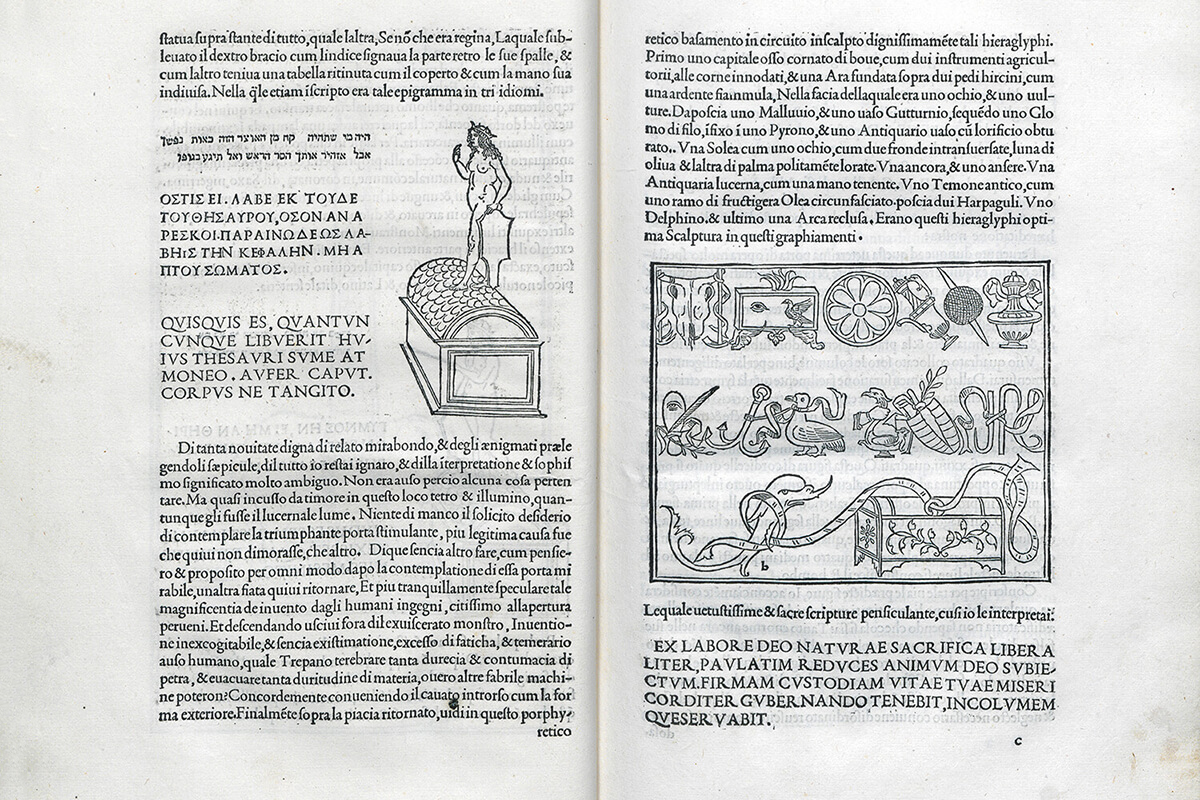 ſtatua ſupra ſtante di tutto, quale laltra, Se nõ che era regina, Laquale ſub-
leuato il dextro bracio cum lindice ſignaua la parte retro le ſue ſpalle, &
cum laltro teniua una tabella ritinuta cum il coperto & cum la mano ſua
indiuiſa. Nella q̃le etiam iſcripto era tale epigramma in tri idiomi.
היה מי שתהיה קח מן האוצר הזה כאות נפשך
אבל אזהיר אותך הסר הראש ואל תיגע בגופו
ΟΣΤΙΣ ΕΙ. ΛΑΒΕ ΕΚ ΤΟΥΔΕ
ΤΟΥ ΘΗΣΑΥΡΟΥ, ΟΣΟΝ ΑΝ Α
ΡΕΣΚΟΙ. ΠΑΡΑΙΝΩ ΔΕ ΩΣ ΛΑ-
ΒΗΙΣ ΤΗΝ ΚΕΦΑΛΗΝ. ΜΗ Α
ΠΤΟΥ ΣΩΜΑΤΟΣ.
QVISQVIS ES, QVANTVN
CVNQVE LIBVERIT HV-
IVS THESAVRI SVME AT
MONEO. AVFER CAPVT.
CORPVS NE TANGITO.
Di tanta nouitate digna di relato mirabondo, & degli ænigmati præle
gendoli ſæpicule, dil tutto io reſtai ignaro, & dilla ĩterpretatione & ſophiſ
mo ſignificato molto ambiguo. Non era auſo percio alcuna coſa perten
tare. Ma quaſi incuſſo da timore in queſto loco tetro & illumino, quan-
tunque gli fuſſe il lucernale lume. Niente di manco il ſolicito deſiderio
di contemplare la triumphante porta ſtimulante, piu legitima cauſa fue
che quiui non dimoraſſe, che altro. Dique ſencia altro fare, cum penſie-
ro & propoſito per omni modo dapo la contemplatione di eſſa porta mi
rabile, unaltra fiata quiui ritornare, Et piu tranquillamente ſpeculare tale
magnificentia de inuento dagli humani ingegni, citiſſimo allapertura
perueni. Et deſcendando uſciui fora dil exuiſcerato monſtro, Inuentio-
ne inexcogitabile, & ſencia exiſtimatione, exceſſo di faticha, & temerario
auſo humano, quale Trepano terebrare tanta durecia & contumacia di
petra, & euacuare tanta duritudine di materia, ouero altre fabrile machi-
ne poteron? Concordemente conueniendo il cauato introrſo cum la for
ma exteriore. Finalmẽte ſopra la piacia ritornato, uidi in queſto porphy-
retico
retico baſamento in circuito inſcalpto digniſſimamẽte tali hieraglyphi.
Primo uno capitale oſſo cornato di boue, cum dui inſtrumenti agricul-
torii, alle corne innodati, & una Ara fundata ſopra dui pedi hircini, cum
una ardente fiammula, Nella facia dellaquale era uno ochio, & uno uul-
ture. Dapoſcia uno Malluuio, & uno uaſo Gutturnio, ſequẽdo uno Glo
mo di filo, ĩfixo ĩ uno Pyrono, & uno Antiquario uaſo cũ lorificio obtu
rato. Vna Solea cum uno ochio, cum due fronde intranſuerſate, luna di
oliua & laltra di palma politamẽte lorate. Vna ancora, & uno anſere. Vna
Antiquaria lucerna, cum una mano tenente. Vno Temone antico, cum
uno ramo di fruſtigera Olea circunfaſciato. poſcia dui Harpaguli. Vno
Delphino. & ultimo una Arca recluſa. Erano queſti hieraglyphi opti-
ma Scalptura in queſti graphiamenti.
b
Lequale uetuſtiſſime & ſacre ſcripture penſiculante, cuſi io le interpretai.
EX LABORE DEO NATVRAE SACRIFICA LIBERA
LITER, PAVLATIM REDVCES ANIMVM DEO SVBIE-
CTVM. FIRMAM CVSTODIAM VITAE TVAE MISERI
CORDITER GVBERNANDO TENEBIT, INCOLVMEM
QVE SERVABIT.
c